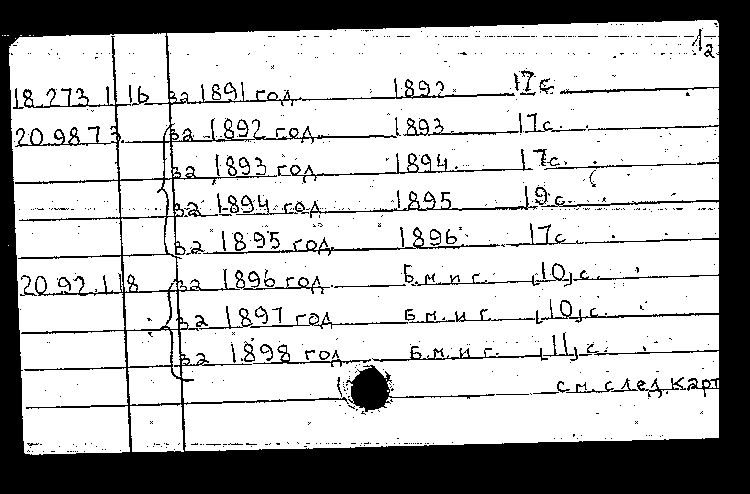 1₂
18.273.1.16 за 1891 год 1892 17с.
20.98.7.3 за 1892 год 1893 17с.
за 1893 год 1894 17с.
за 1894 год 1895 19с.
за 1895 год 1896 17с.
20.92.1.18 за 1896 год Б.м. и г. [10] с.
за 1897 год Б.м. и г. [10] с.
за 1898 год Б.м. и г. [11] с.
см. след. карт